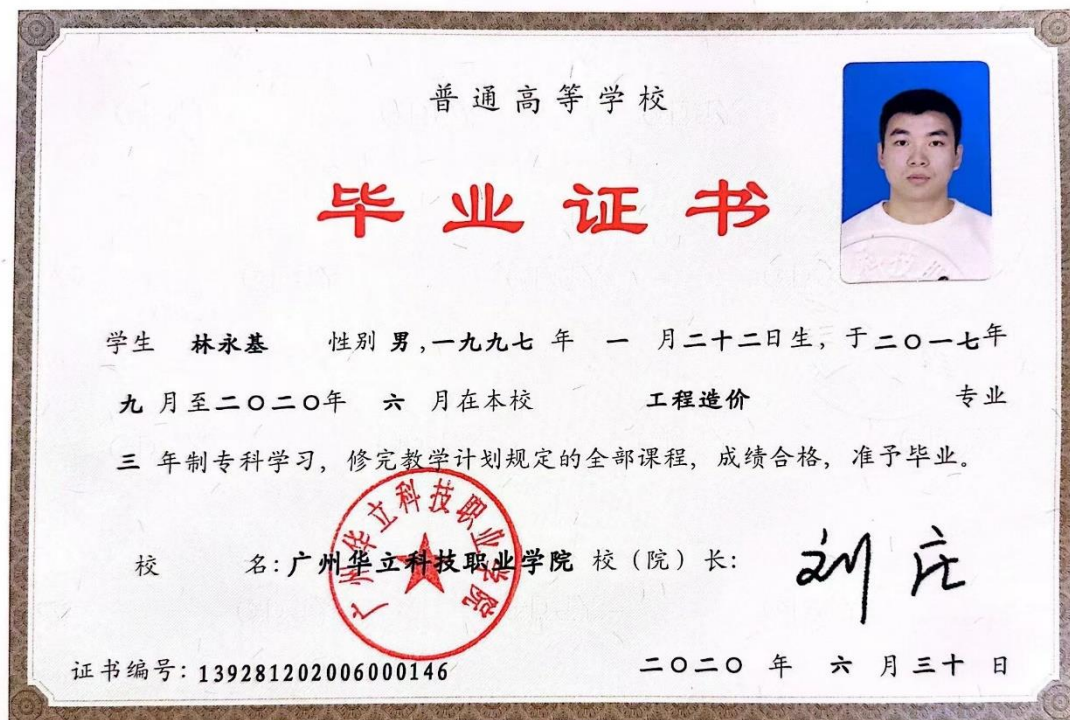 普通高等学校
毕业证书
学生 林永基 性别 男,一九九七 年 一 月二十二日生,于二〇一七年
九 月至二〇二〇年 六 月在本校 工程造价 专业
三 年制专科学习,修完教学计划规定的全部课程,成绩合格,准予毕业。
广州华立科技职业学院
校 名:广州华立科技职业学院 校(院)长: 刘庄
证书编号:139281202006000146 二〇二〇 年 六 月三十 日